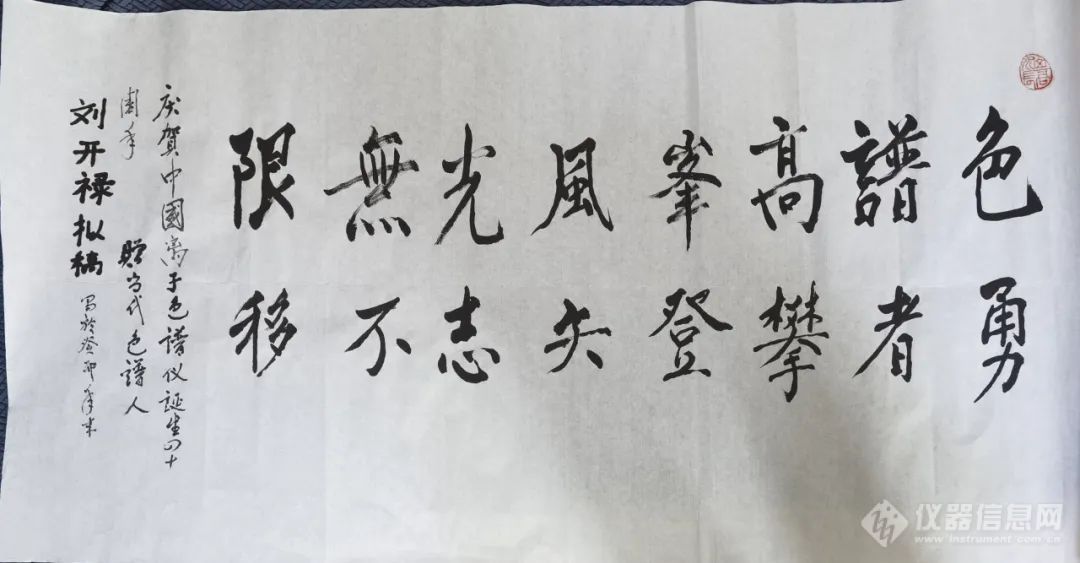 色譜高峯風光無限
勇者攀登矢志不移
庆贺中國离子色譜仪誕生四十
周年
贈当代色譜人
刘开禄拟稿
写於癸卯年末
仪器信息网
www.instrument.com.cn